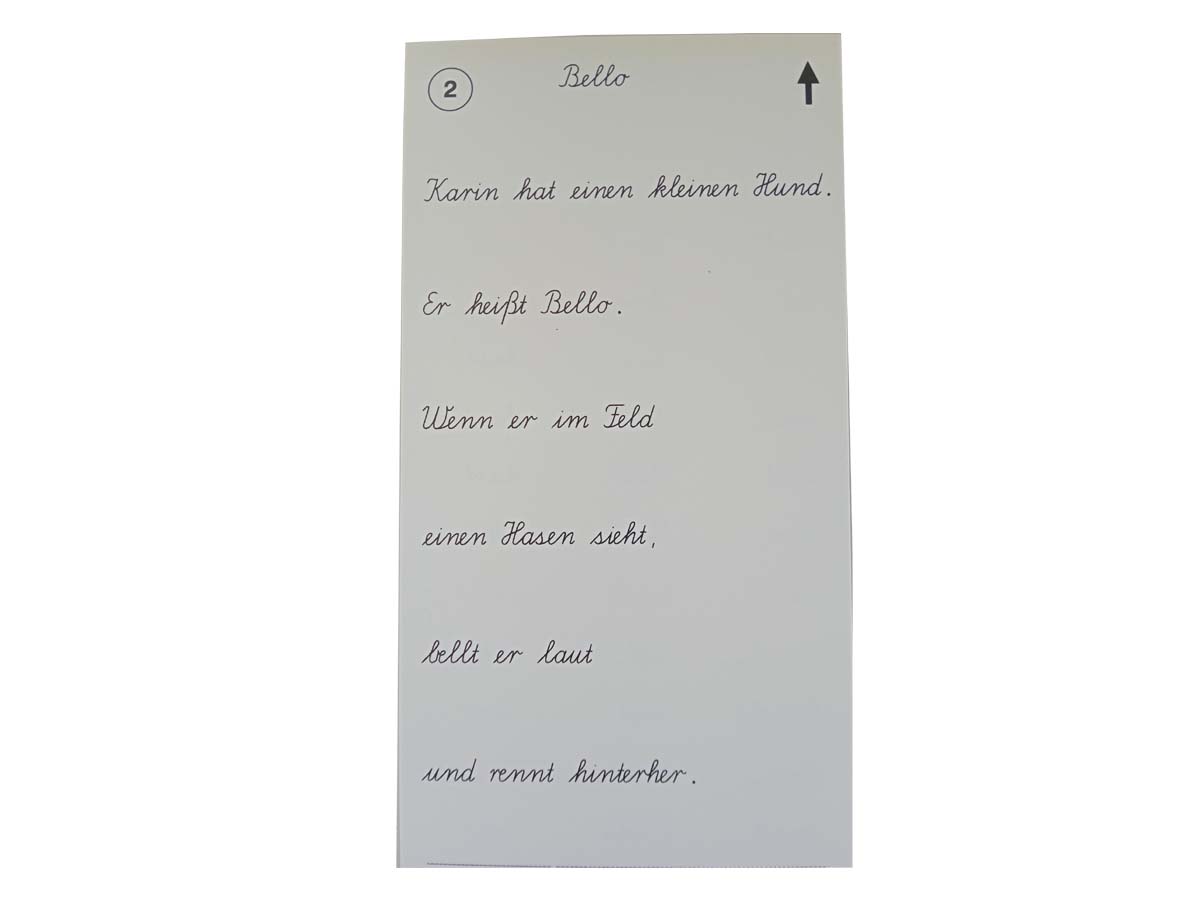 2 Bello
Karin hat einen kleinen Hund.
Er heißt Bello.
Wenn er im Feld
einen Hasen sieht,
bellt er laut
und rennt hinterher.